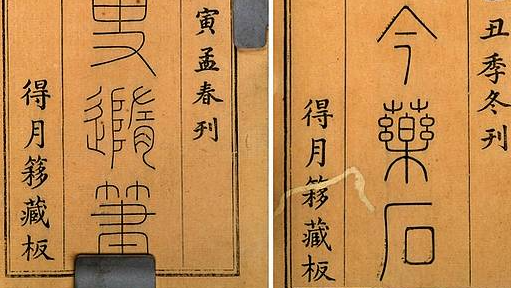 寅孟春刊
隨筆
得月簃藏板
丑季冬刊
今藥石
得月簃藏板